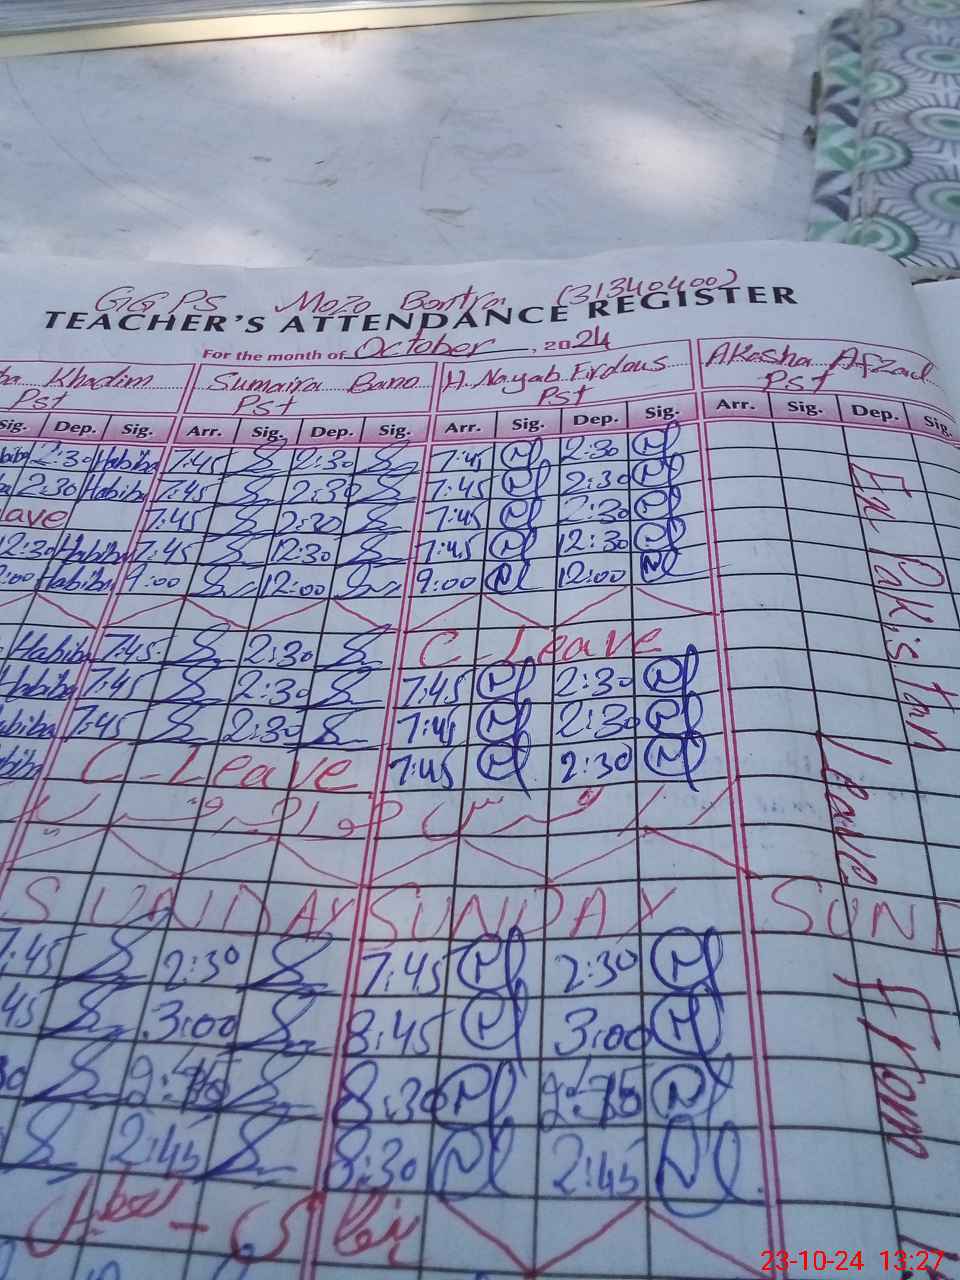 GGPS Mozo Bontra (31340400)
TEACHER'S ATTENDANCE REGISTER
For the month of October, 2024
Khadim Sumaira Bano H. Nayab Firdous Akasha Afzal
Pst Pst Pst Pst
Sig. Dep. Sig. Arr. Sig. Dep. Sig. Arr. Sig. Dep. Sig. Arr. Sig. Dep. Sig.
2:30 Habiba 7:45 2:30 7:45 2:30
2:30 Habiba 7:45 2:30 7:45 2:30
7:45 2:30 7:45 2:30
12:30 Habiba 7:45 12:30 7:45 12:30
Habiba 9:00 12:00 9:00 12:00
Habiba 7:45 2:30 C-Leave
Habiba 7:45 2:30 7:45 2:30
7:45 2:30 7:45 2:30
C-Leave 7:45 2:30
SUNDAY SUNDAY SUND
7:45 2:30 7:45 2:30
3:00 8:45 3:00
8:30
2:45 8:30 2:45
Ex Pakistan Leave From
23-10-24 13:27